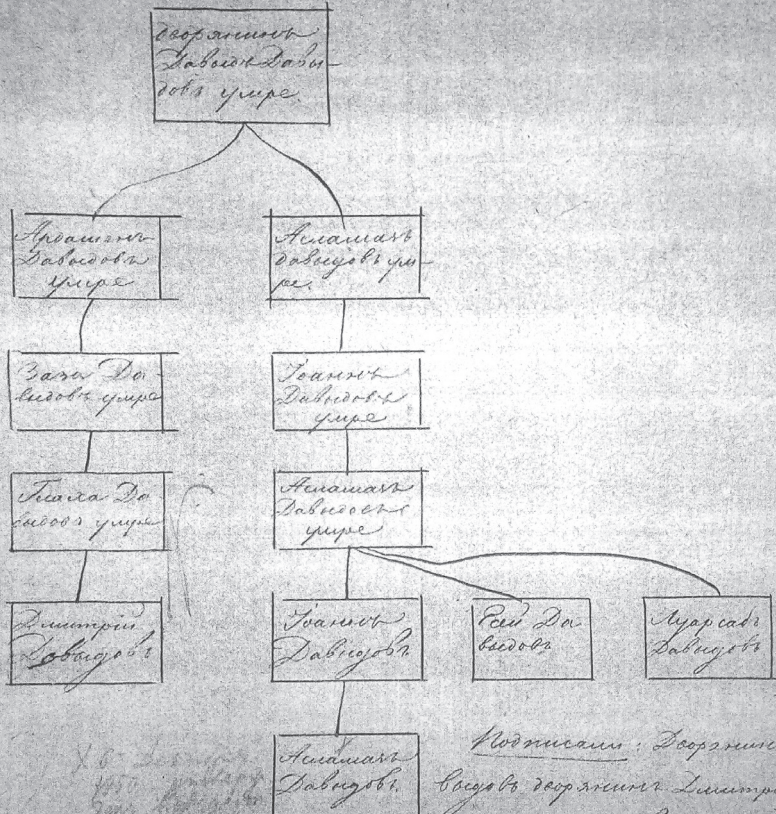 дворянинъ
Давыдъ Давы-
довъ умре.
Ардашенъ
Давыдовъ
умре
Асламазъ
Давыдовъ ум-
ре.
Заза Да-
выдовъ умре
Іоаннъ
Давыдовъ
умре
Глаха Да
выдовъ умре
Асламазъ
Давыдовъ
умре
Дмитрій
Давыдовъ
Іоаннъ
Давыдовъ
Есей Да
выдовъ
Луарсабъ
Давыдовъ
Асламазъ
Давыдовъ.
Подписали: Дворянин
выдовъ дворянинъ Дмитрі